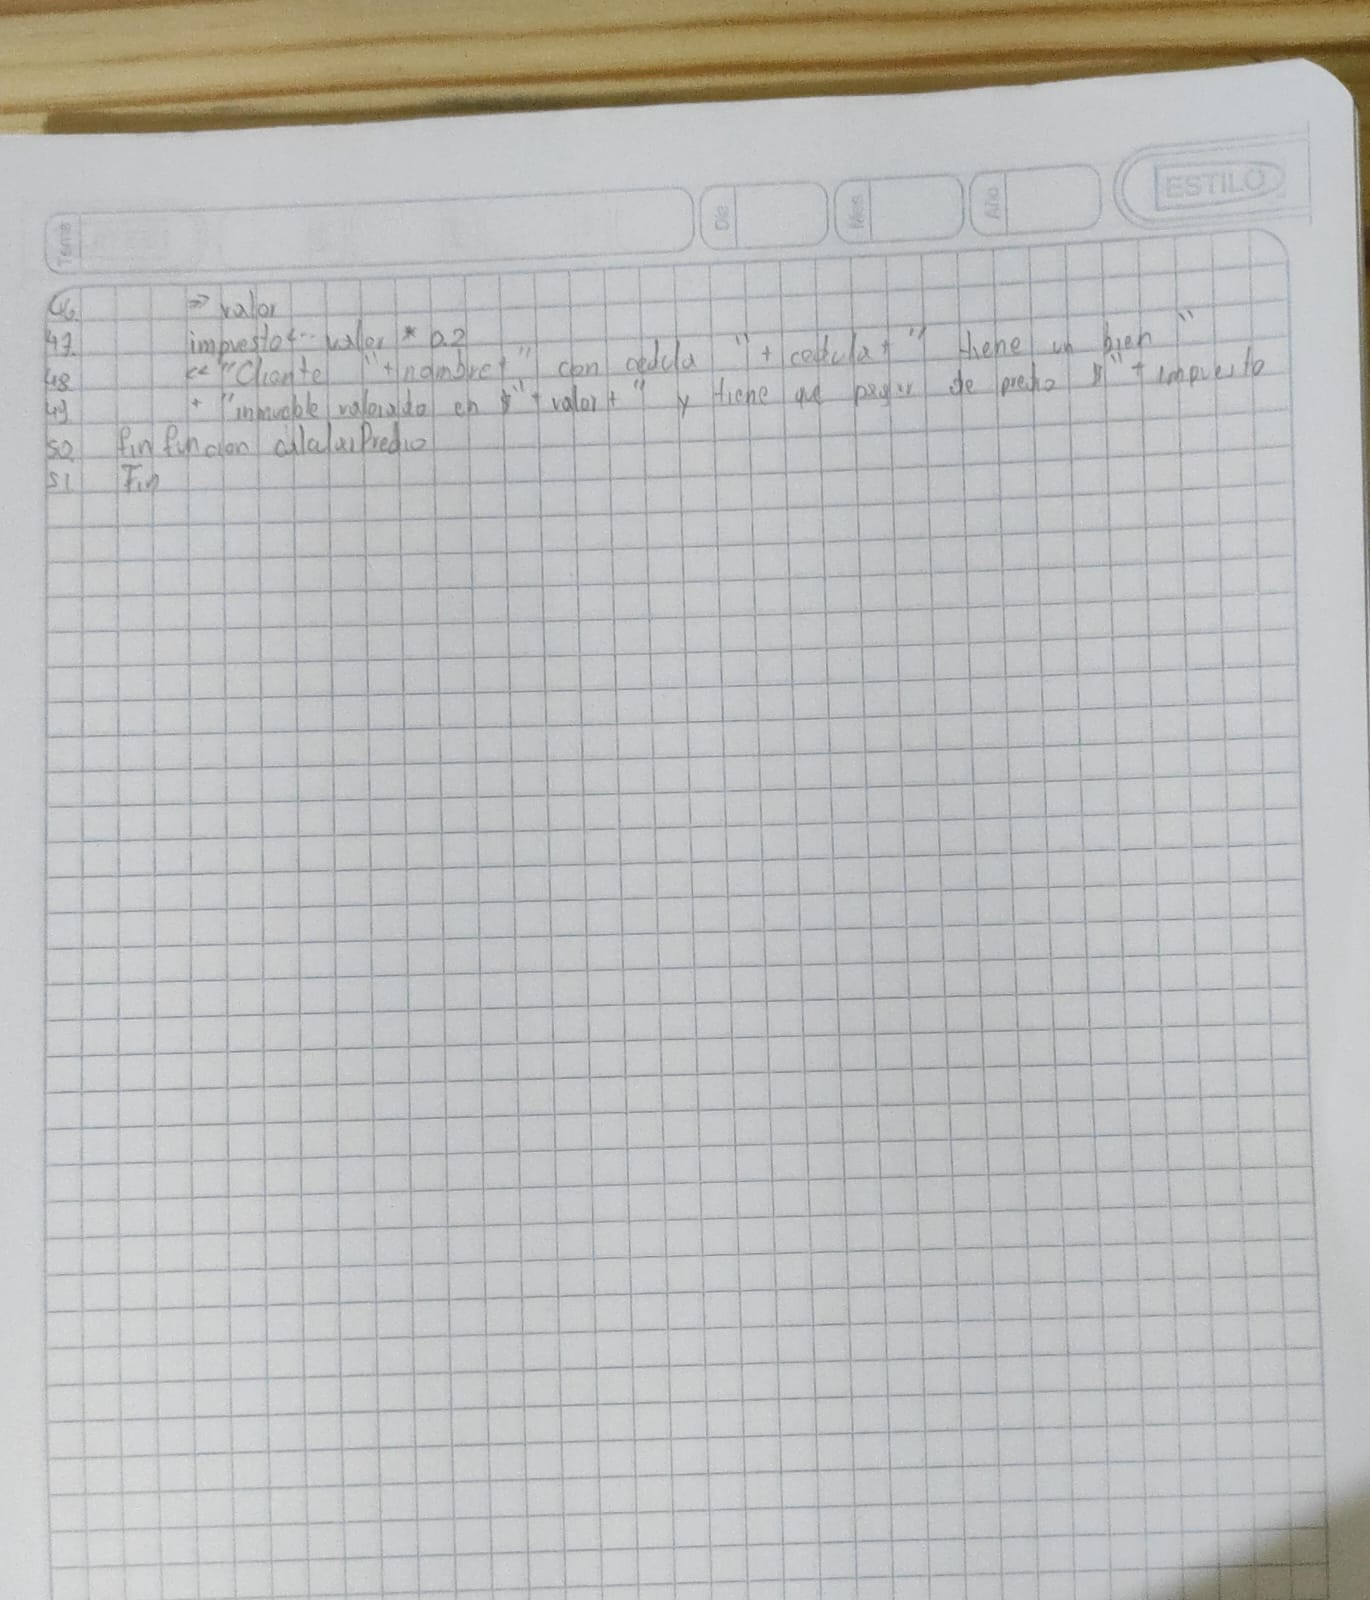 Tema Día Mes Año ESTILO
46 => valor
47 impuesto<-- valor * 0.2
48 << "Cliente "+nombre+" con cedula "+ cedula+" tiene un bien "
49 + "inmueble valorado en $"+valor+" y tiene que pagar de predio $"+impuesto
50 fin funcion calcularPredio
51 Fin